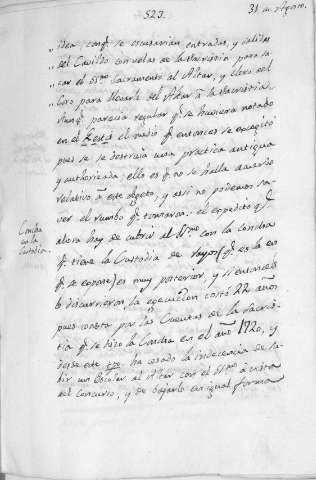 523.
31 de Agosto.
„ idea conq.e se escusarian entradas, y salidas
„ del Cavildo con velas de la Sacristia para sa
„ car el SS.mo Sacramento al Altar, y Clero del
„ Coro para llevarle del Altar à la Sacristia.
Aunq.e parecia regular q.e se huviera notado
en el Lexta el medio q.e entonces se excogitò
pues se destruia una practica antigua
y authorizada, ello es q.e no se halla acuerdo
relativo à este objeto, y assi no podemos sa-
ver el rumbo q.e tomaron: el expedito q.e
ahora hay de cubrir el SS.mo con la Concha
q.e tiene la Custodia de rayos (q.e es la en
q.e se expone) es muy posterior, y si entonces
lo discurrieron la egecucion costò 22 años
pues consta por las Cuentas de la Sacris-
tia q.e se hizo la Concha en el año 1720, y
desde este tpo. ha cesado la indecencia de su-
bir un Escolar al Altar con el SS.mo à vista
del Concurso, y de bajarlo en igual forma
Concha
en la
Custodia.